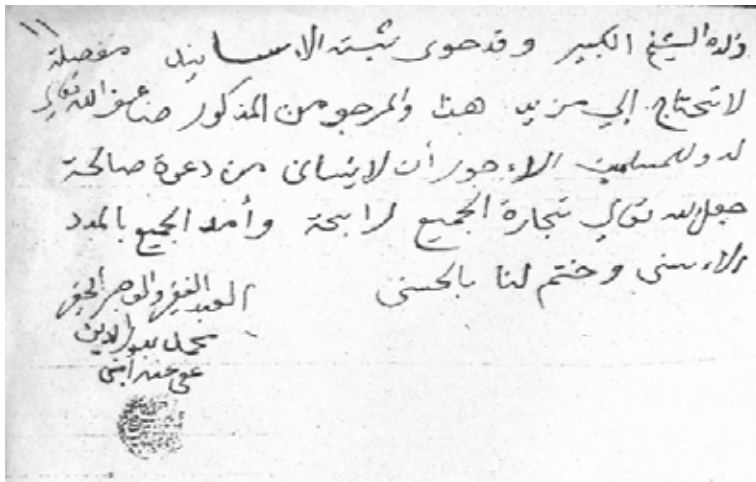 ١١
ولده الشيخ الكبير وقد حوى ثبته الاسانيد مفصلة
لا تحتاج إلي مزيد هذا والمرجو من المذكور ضاعف الله تعالى
له وللمسلمين الاءجور أن لا ينساني من دعوة صالحة
جعل الله تعالي تجارة الجميع رابحة وأمد الجميع بالمدد
الاءسنى وختم لنا بالحسنى
العبد الفقير والعاجز الحقير
محمد بدر الدين
عفي عنه آمين